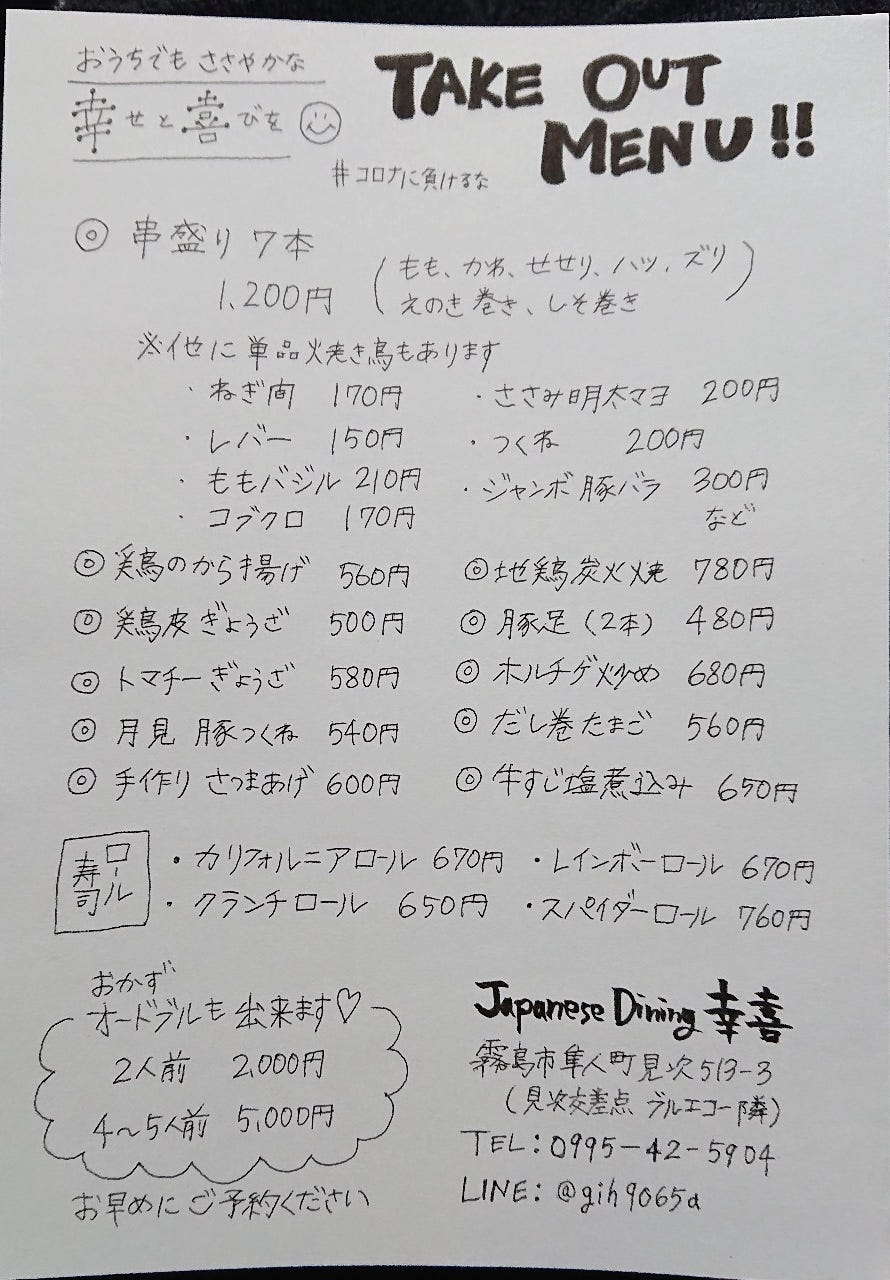 おうちでも ささやかな
幸せと喜びを
TAKE OUT
MENU!!
#コロナに負けるな
◎ 串盛り 7本
1,200円
(もも、かわ、せせり、ハツ、ズリ
えのき巻き、しそ巻き)
※他に 単品焼き鳥もあります
・ねぎ間 170円 ・ささみ明太マヨ 200円
・レバー 150円 ・つくね 200円
・ももバジル 210円 ・ジャンボ豚バラ 300円
・コブクロ 170円 など
◎鶏のから揚げ 560円 ◎地鶏炭火焼 780円
◎鶏皮ぎょうざ 500円 ◎豚足(2本) 480円
◎トマチーぎょうざ 580円 ◎ホルチゲ炒め 680円
◎月見 豚つくね 540円 ◎だし巻たまご 560円
◎手作り さつまあげ 600円 ◎牛すじ塩煮込み 650円
ロール
寿司
・カリフォルニアロール 670円 ・レインボーロール 670円
・クランチロール 650円 ・スパイダーロール 760円
おかず
オードブルも 出来ます♡
2人前 2,000円
4〜5人前 5,000円
お早めに ご予約ください
Japanese Dining 幸喜
霧島市隼人町見次513-3
(見次交差点 ブルエコー隣)
TEL:0995-42-5904
LINE:@gih9065a